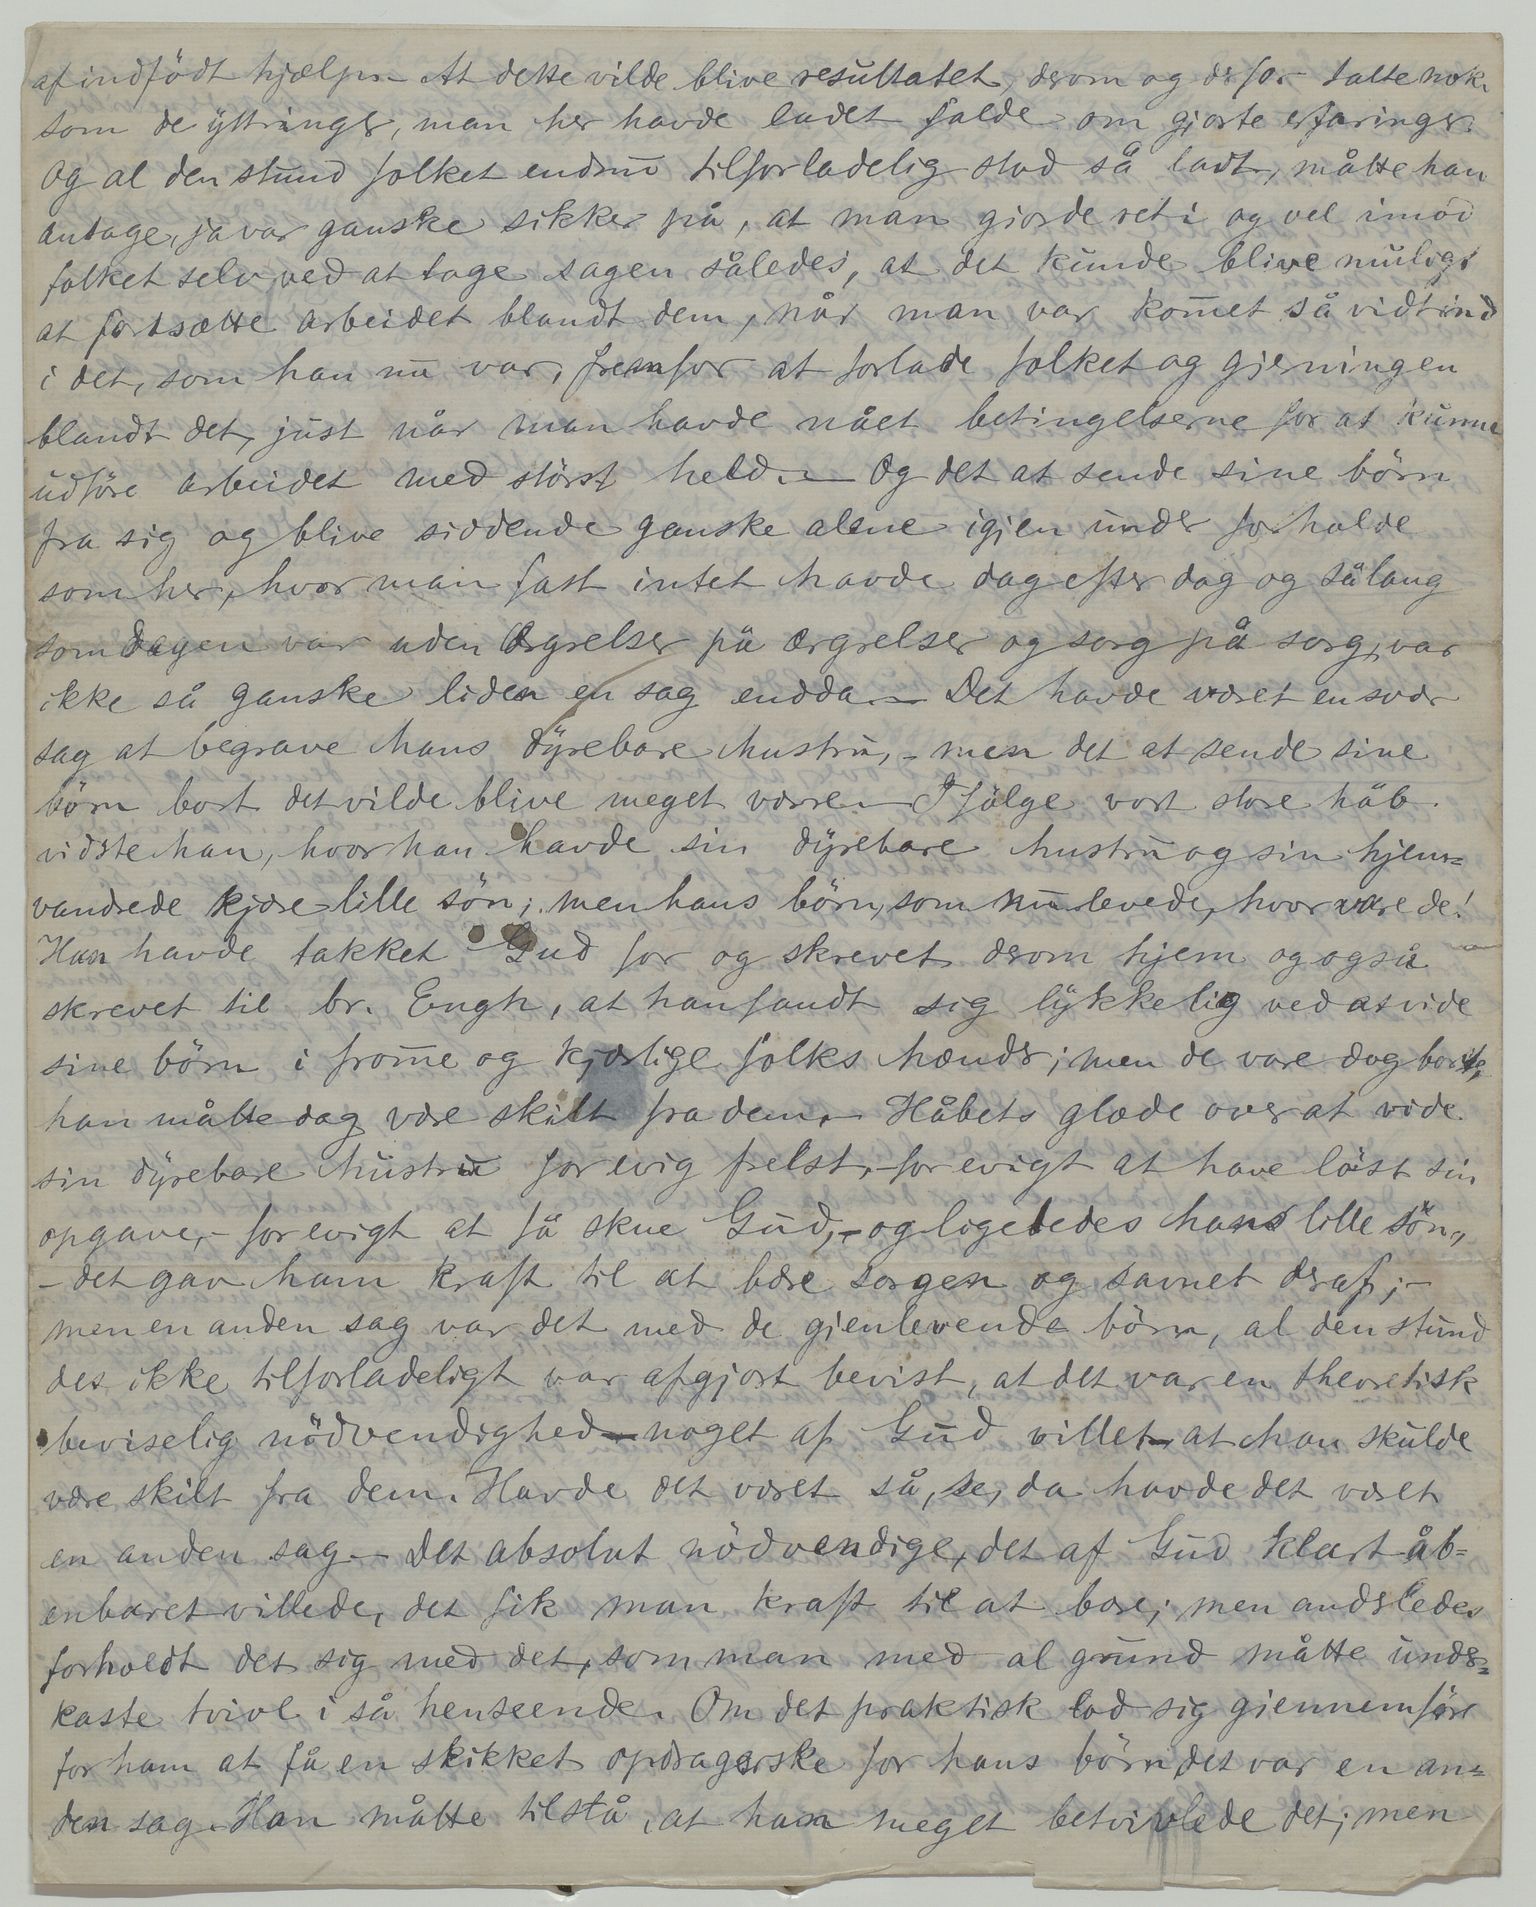 af indfödt hjælp. – At dette vilde blive resultatet, derom og derfor talte nok
som de yttringer, man her havde ladet falde om gjorte erfaringer.
Og al den stund folket endnu tilforladelig stod så lavt, måtte han
antage, ja var ganske sikker på, at man gjorde ret i og vel imod
folket selv ved at tage sagen således, at det kunde blive muligt
at fortsætte arbeidet blandt dem, når man var kom̅et så vidt ind
i det, som han nu var, fremfor at forlade folket og gjerningen
blandt det, just når man havde nået betingelserne for at kunne
udföre arbeidet med störst held. – Og det at sende sine börn
fra sig og blive siddende ganske alene igjen under forholde
som her, hvor man fast intet havde dag efter dag og så lang
som dagen var uden ærgrelser på ærgrelser og sorg på sorg, var
ikke så ganske liden en sag endda. – Det havde været en svær
sag at begrave hans dyrebare hustru, – men det at sende sine
börn bort det vilde blive meget værre. – Ifölge vort store håb
vidste han, hvor han havde sin dyrebare hustru og sin hjem=
vandrede kjære lille sön; men hans börn, som nu levede, hvor vare de!
Han havde takket Gud for og skrevet derom hjem og også
skrevet til br. Engh, at han fandt sig lykkelig ved at vide
sine börn i from̅e og kjærlige folks hænder; men de vare dog borte,
han måtte dog være skilt fra dem. – Håbets glæde over at vide
sin dyrebare hustru for evig frelst, – for evigt at have löst sin
opgave, – for evigt at få skue Gud, – og ligeledes hans lille sön,
– det gav ham kraft til at bære sorgen og savnet deraf; –
men en anden sag var det med de gjenlevende börn, al den stund
det ikke tilforladeligt var afgjort bevist, at det var en theoretisk
beviselig nödvendighed – noget af Gud villet – at han skulde
være skilt fra dem. Havde det været så, se, da havde det været
en anden sag. – Det absolut nödvendige, det af Gud klart åb=
enbaret villede, det fik man kraft til at bære; men anderledes
forholdt det sig med det, som man med al grund måtte under=
kaste tvivl i så henseende. Om det praktisk lod sig gjennemföre
for ham at få en skikket opdragerske for hans börn det var en an=
den sag. Han måtte tilstå, at han meget betvivlede det; men